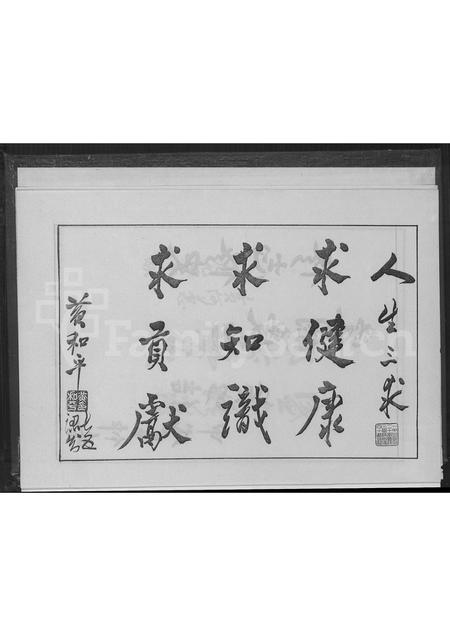 人生三求
求健康
求知識
求貢獻
黄和平
FamilySearch